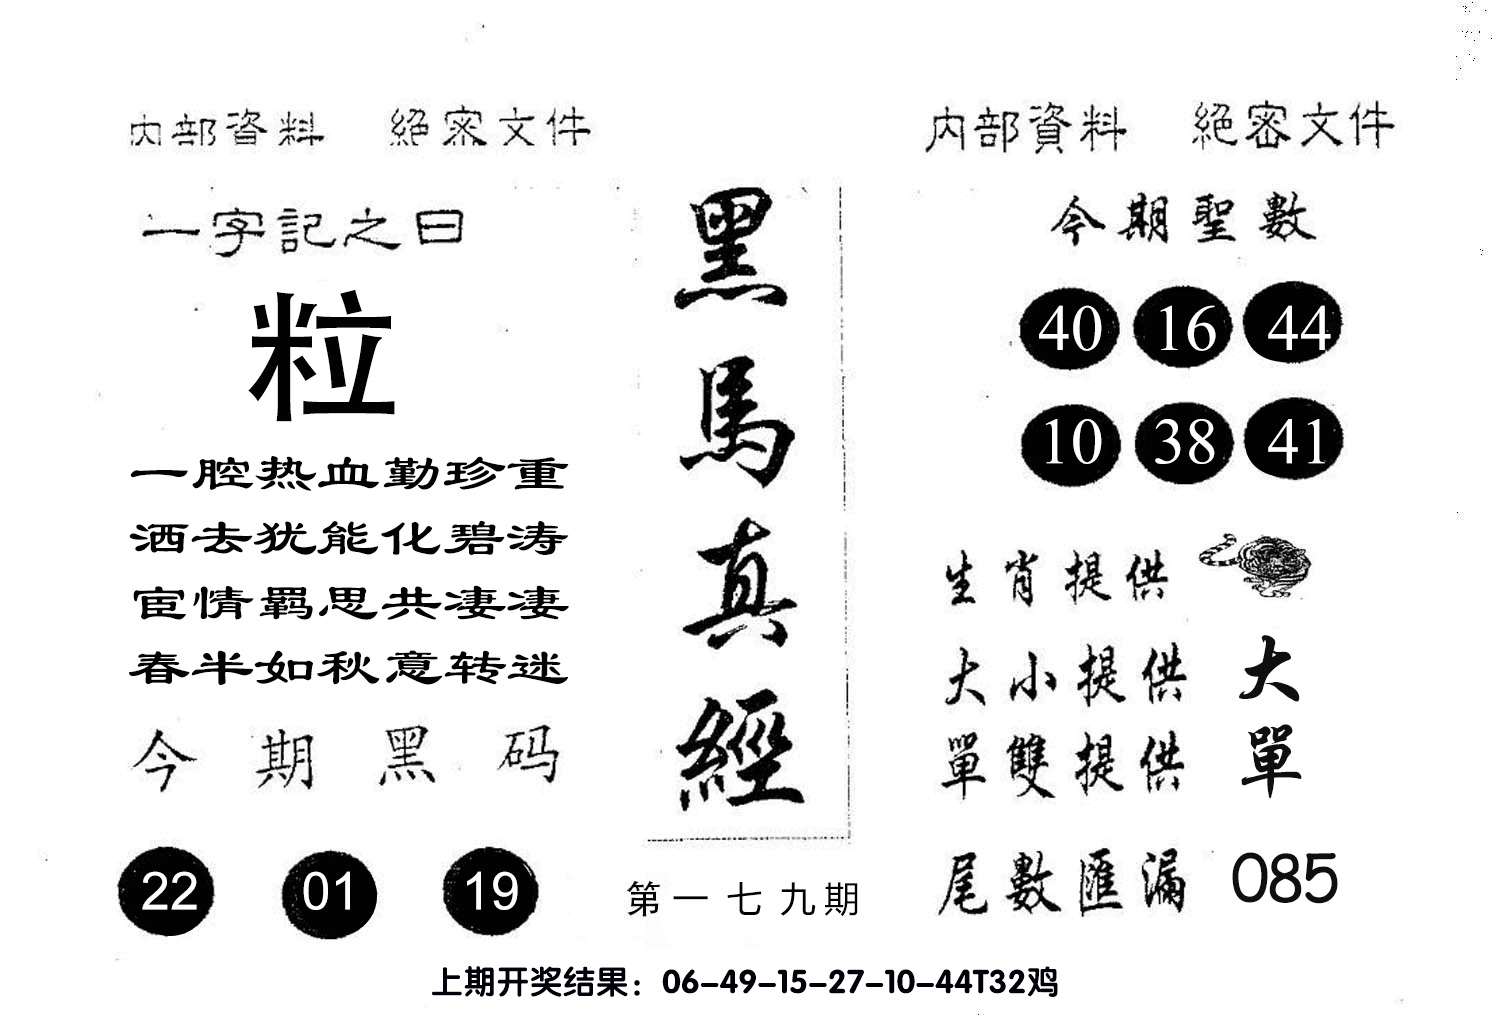 内部資料 絕密文件
一字記之曰
粒
一腔热血勤珍重
洒去犹能化碧涛
宦情羁思共凄凄
春半如秋意转迷
今期黑码
22 01 19
黑馬真經
第一七九期
内部資料 絕密文件
今期聖數
40 16 44
10 38 41
生肖提供
大小提供 大
單雙提供 單
尾數匯漏 085
上期开奖结果：06-49-15-27-10-44T32鸡